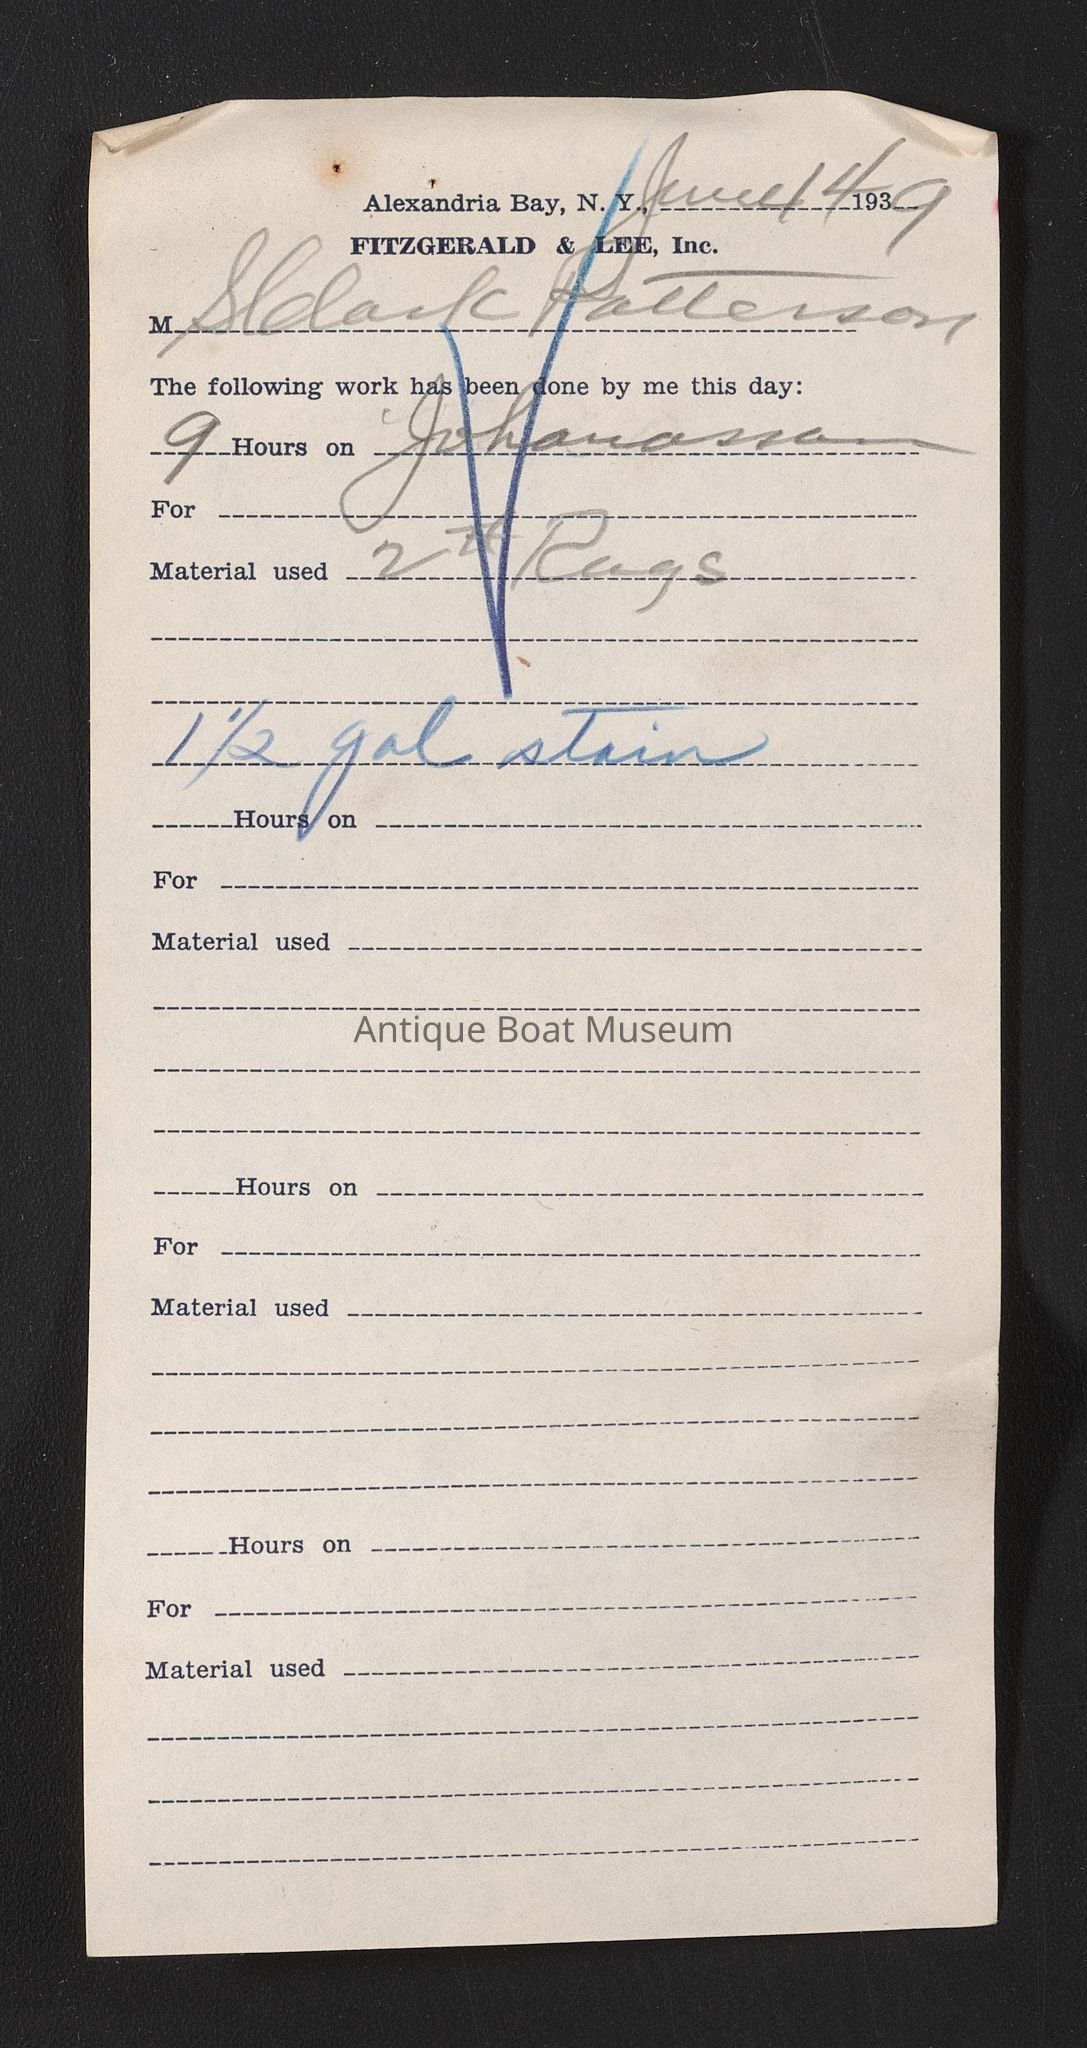 Alexandria Bay, N. Y., June 14 1939
FITZGERALD & LEE, Inc.
M Clark Patterson
The following work has been done by me this day:
9 Hours on
For
Material used 2# Rags
1 1/2 gal stain
Hours on
For
Material used
Antique Boat Museum
Hours on
For
Material used
Hours on
For
Material used